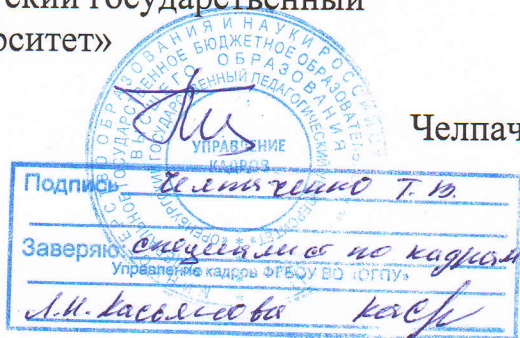 ский государственный
рситет»
Челпач
УПРАВЛЕНИЕ
КАДРОВ
Подпись Челпаченко Т.В.
Заверяю: специалист по кадрам
Управление кадров ФГБОУ ВО «ОГПУ»
Л.Н. Касьянова